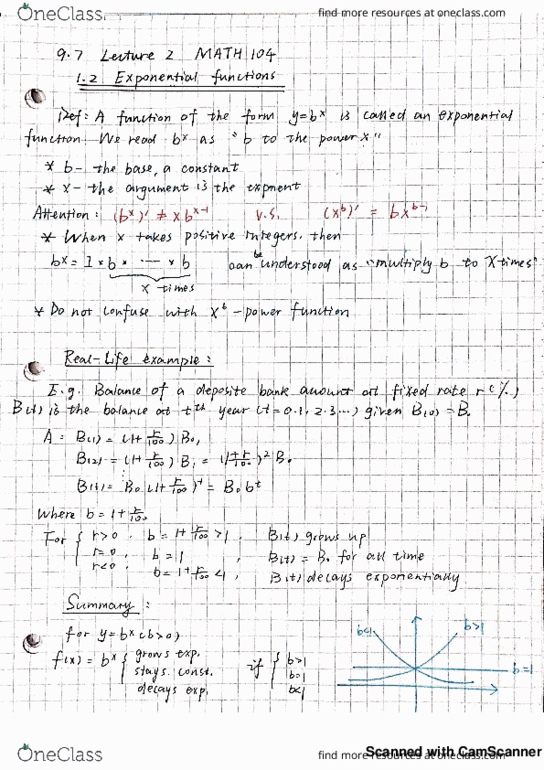 OneClass find more resources at oneclass.com
9.7 Lecture 2 MATH 104
1.2 Exponential functions
Def: A function of the form y=bˣ is called an exponential
function. We read bˣ as "b to the power x"
* b - the base, a constant
* x - the argument is the expnent
Attention: (bˣ)' ≠ xbˣ⁻¹ v.s. (xᵇ)' = bxᵇ⁻¹
* When x takes positive integers. then
bˣ = 1 × b × ---- × b can be understood as "multiply b to X times"
x times
* Do not confuse with xᵇ - power function
Real-Life example:
E.g. Balance of a deposite bank amount at fixed rate r(%)
B(t) is the balance at tᵗʰ year (t=0.1.2.3...) given B(0) = B.
A: B(1) = (1+ r/100) B₀,
B(2) = (1+ r/100) B₁ = (1+ r/100)² B₀
⋮
B(t) = B₀ (1+ r/100)ᵗ = B₀ bᵗ
Where b = 1+ r/100
For { r>0 , b = 1+ r/100 >1 , B(t) grows up
r=0 , b=1 , B(t) = B₀ for all time
r<0 , b = 1+ r/100 <1 , B(t) decays exponentially
Summary:
for y=bˣ (b>0)
f(x) = bˣ { grows exp. if { b>1
stays. const. b=1
decays exp. b<1
b<1 b>1
b=1
Scanned with CamScanner
OneClass find more resources at oneclass.com